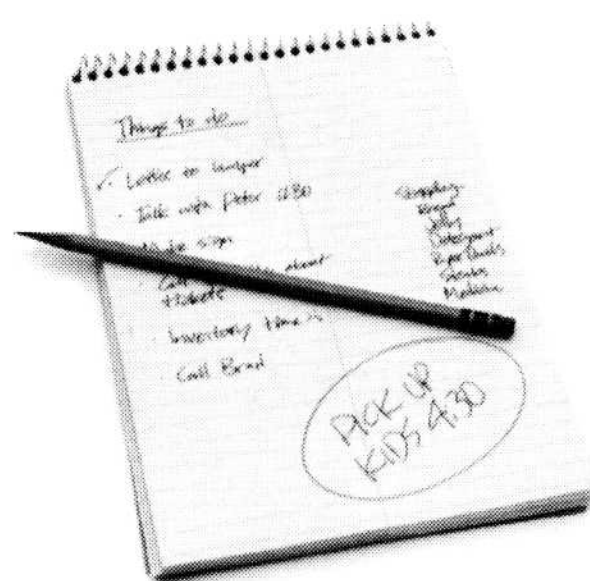 Things to do
Letter to lawyer
Talk with Peter
Make sign
about
tickets
Inventory
Call Brad
Shopping
Bread
Jelly
Detergent
Paper Towels
Steaks
Medicine
PICK UP
KIDS 4:30